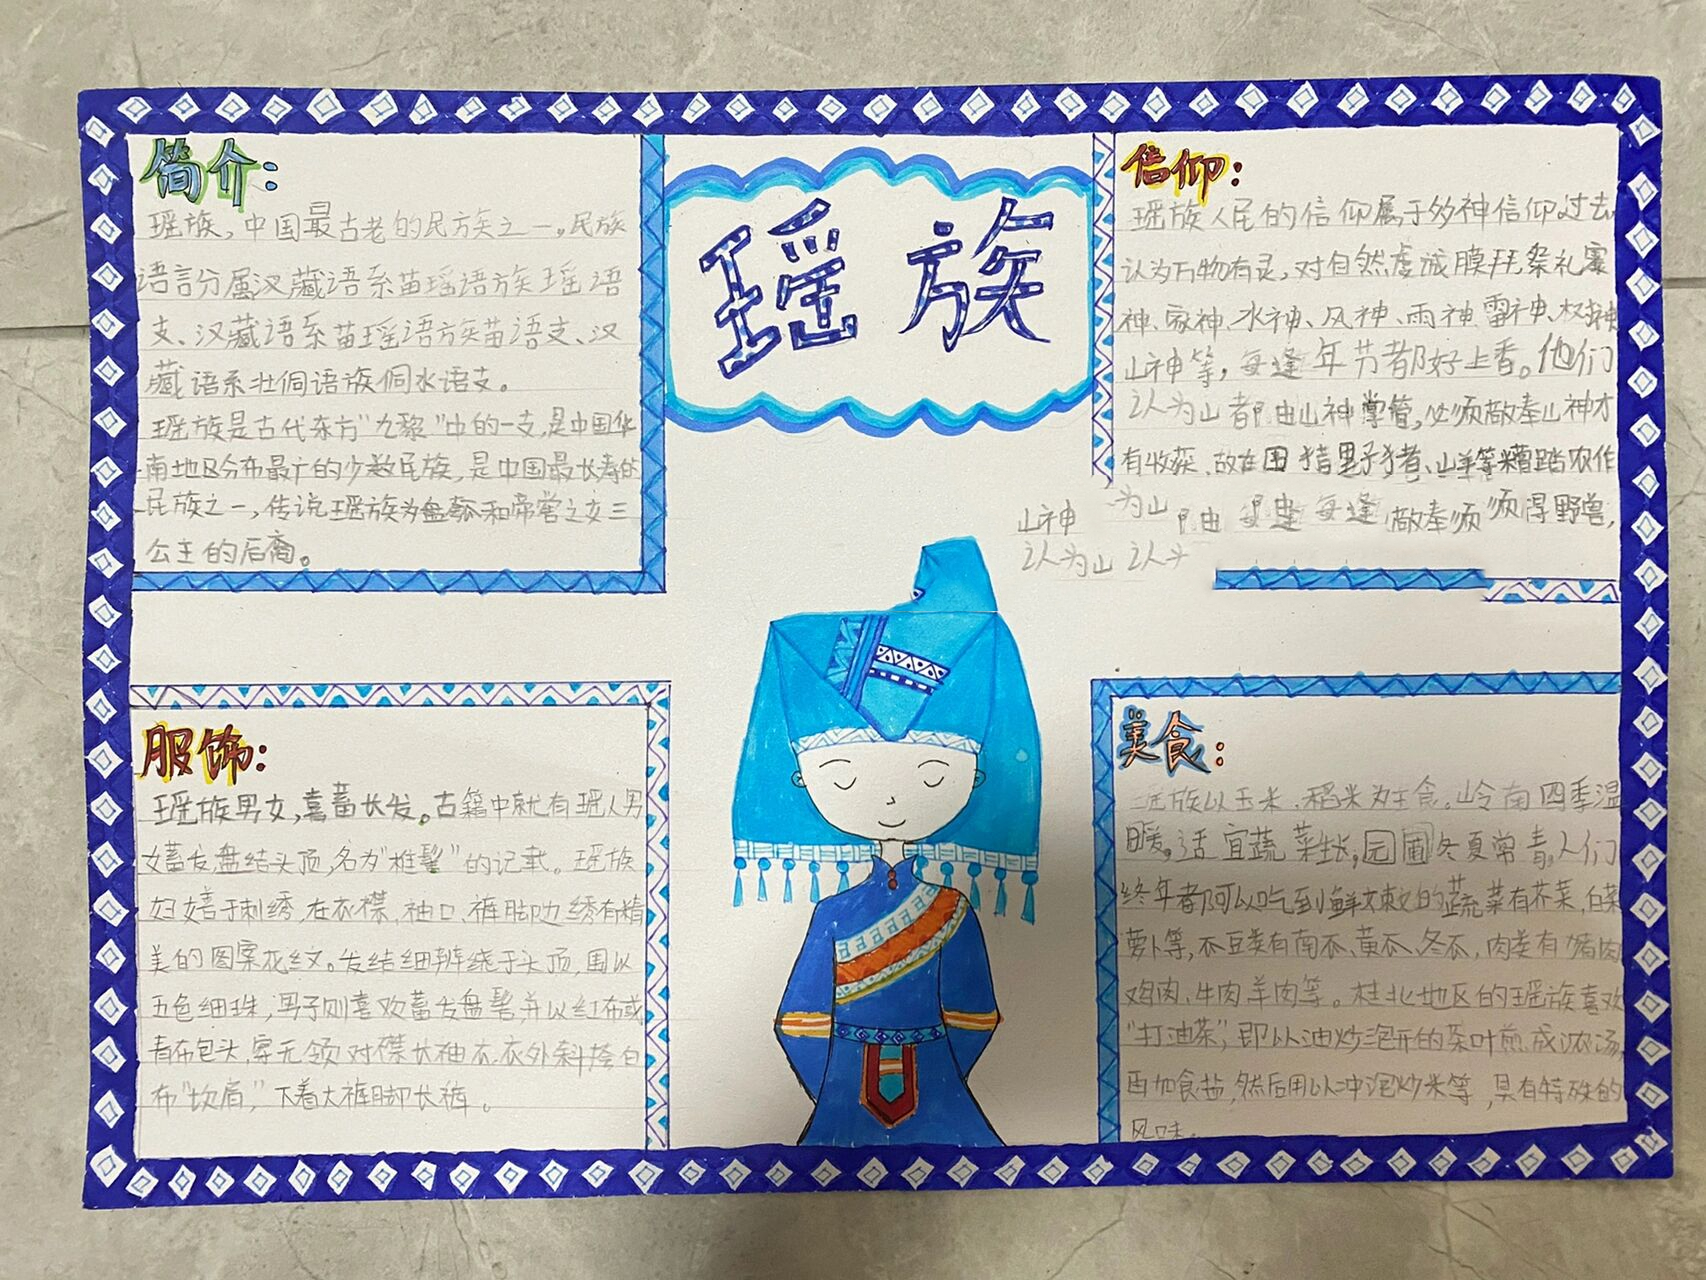 瑶族
简介:
瑶族,中国最古老的民族之一。民族
语言分属汉藏语系苗瑶语族瑶语
支、汉藏语系苗瑶语族苗语支、汉
藏语系壮侗语族侗水语支。
瑶族是古代东方"九黎"中的一支,是中国华
南地区分布最广的少数民族,是中国最长寿的
民族之一,传说瑶族为盘瓠和帝喾之女三
公主的后裔。
信仰:
瑶族人民的信仰属于多神信仰过去
认为万物有灵,对自然虔诚膜拜祭礼
神、家神、水神、风神、雨神、雷神、
山神等,每逢年节都好上香。他们
认为山都由山神掌管,必须敬奉山神才
有收获,故在围猎野猪、山羊等糟踏农作
为山 由 每逢 敬奉须 须得野兽,
山神
认为山 认为
服饰:
瑶族男女,喜蓄长发。古籍中就有瑶人男
女蓄发盘结头顶,名为"椎髻"的记载。瑶族
妇女善于刺绣,在衣襟、袖口、裤脚边绣有精
美的图案花纹。发结细辫绕于头顶,围以
五色细珠,男子则喜欢蓄发盘髻,并以红布或
青布包头,穿无领对襟长袖衣,衣外斜挎白
布"坎肩",下着大裤脚长裤。
美食:
瑶族以玉米、稻米为主食。岭南四季温
暖。适宜蔬菜生长,园圃冬夏常青。人们
终年都可以吃到鲜嫩的蔬菜有芥菜,白菜
萝卜等,瓜豆类有南瓜、黄瓜、冬瓜,肉类有猪肉
鸡肉、牛肉羊肉等。桂北地区的瑶族喜欢
"打油茶",即以油炒泡开的茶叶煎成浓汤,
再加食盐,然后用以冲泡炒米等,具有特殊的
风味。